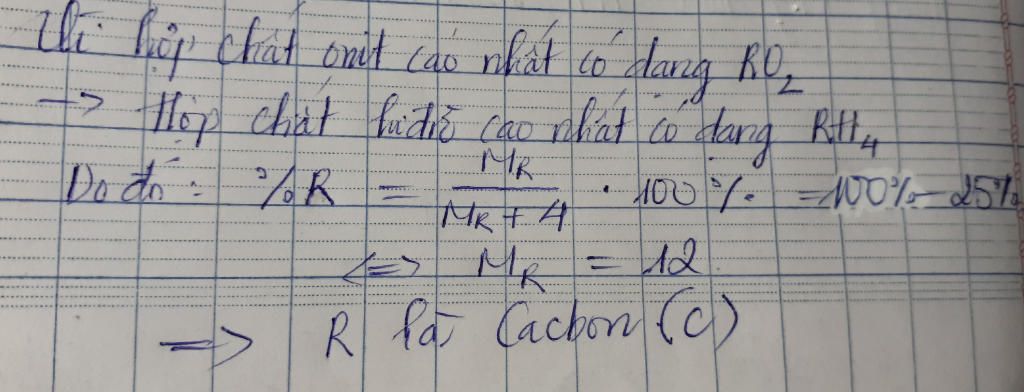 Vì hợp chất oxit cao nhất có dạng RO₂
→ Hợp chất hiđrô cao nhất có dạng RH₄
Do đó: %R = M_R / (M_R + 4) · 100% = 100% - 25%
<=> M_R = 12
=> R là Cacbon (C)